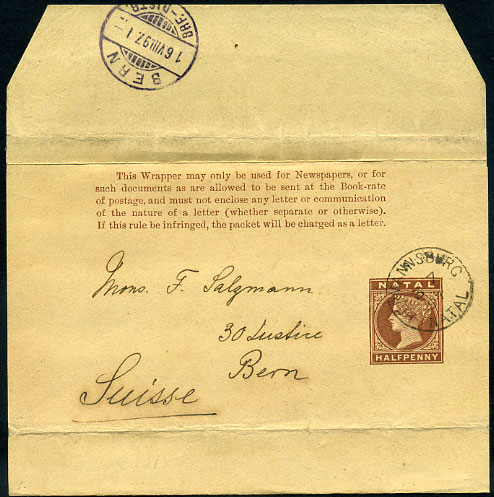 BERN
16.VII.97.1
BRF-DISTR.
This Wrapper may only be used for Newspapers, or for
such documents as are allowed to be sent at the Book-rate
of postage, and must not enclose any letter or communication
of the nature of a letter (whether separate or otherwise).
If this rule be infringed, the packet will be charged as a letter.
NATAL
Mons. F. Salzmann
NATAL
30
HALFPENNY
Bern
Suisse